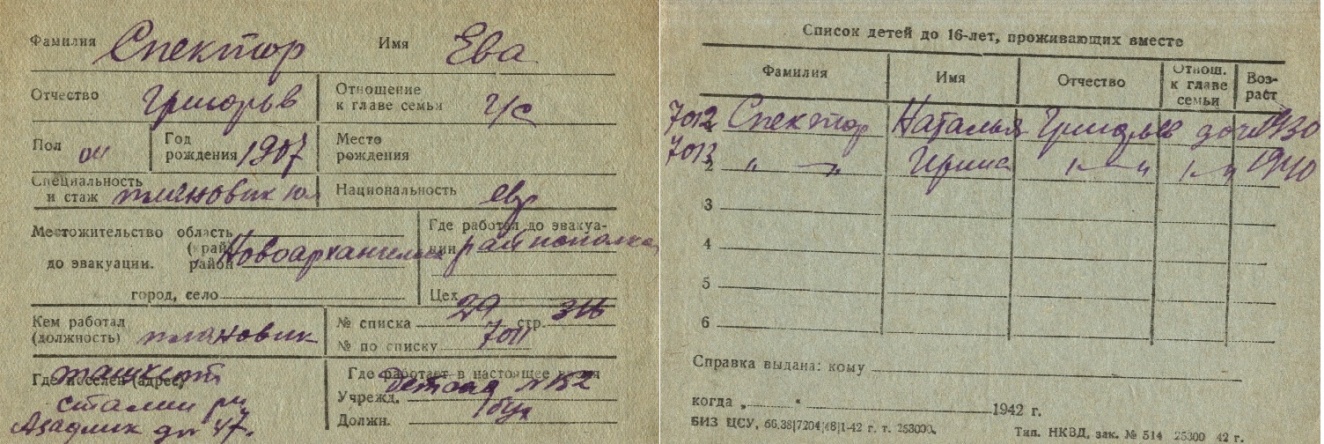 Фамилия Спектор Имя Ева
Отчество Григорьв Отношение к главе семьи г/с
Пол Год рождения 1907 Место рождения
Специальность и стаж плановик Национальность евр
Местожительство область (край) район Новоархангельск
до эвакуации.
город, село
Где работал до эвакуации
Цех
Кем работал (должность) плановик
№ списка 29 стр. 316
№ по списку 7011
Где поселен (адрес) Ташкент
Сталин рн
Азадлик 47.
Где работает в настоящее время
Учрежд. Детсад № 182
Должн. бух
Список детей до 16-лет, проживающих вместе
Фамилия Имя Отчество Отнош. к главе семьи Возраст
7012 Спектор Наталья Григорьев дочь 1930
7013 2 " — " Ирина " — " " — " 1940
3
4
5
6
Справка выдана: кому
когда „ “ 1942 г.
БИЗ ЦСУ, 66.38|7204|48|1-42 г. т. 253000.
Тип. НКВД, зак. № 514 25300 42 г.